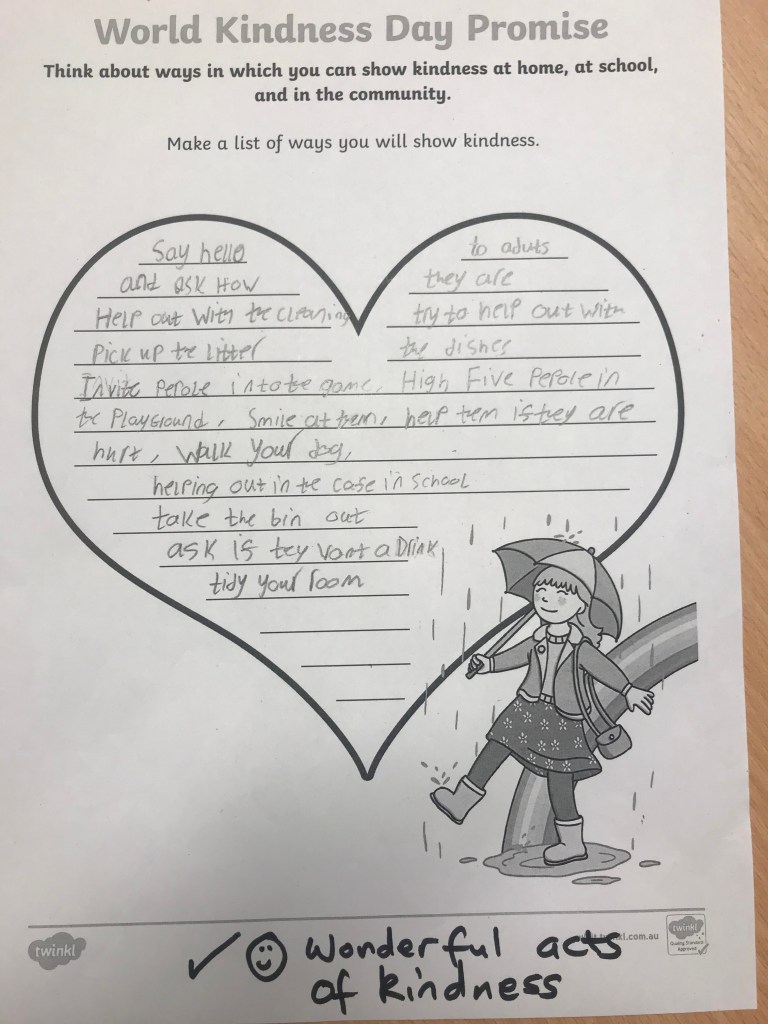 World Kindness Day Promise
Think about ways in which you can show kindness at home, at school,
and in the community.
Make a list of ways you will show kindness.
Say hello to aduts
and ask How they are
Help out With te cleaning try to help out with
Pick up te litter te dishes
Invite Pepole into te game, High Five Pepole in
te Playground, Smile at tem, help tem is they are
hurt, Walk Your dog,
helping out in te case in School
take the bin out
ask is tey vant a Drink
tidy your room
twinkl
.com.au
twinkl
Quality Standard
Approved
✓ ☺ Wonderful acts
of kindness